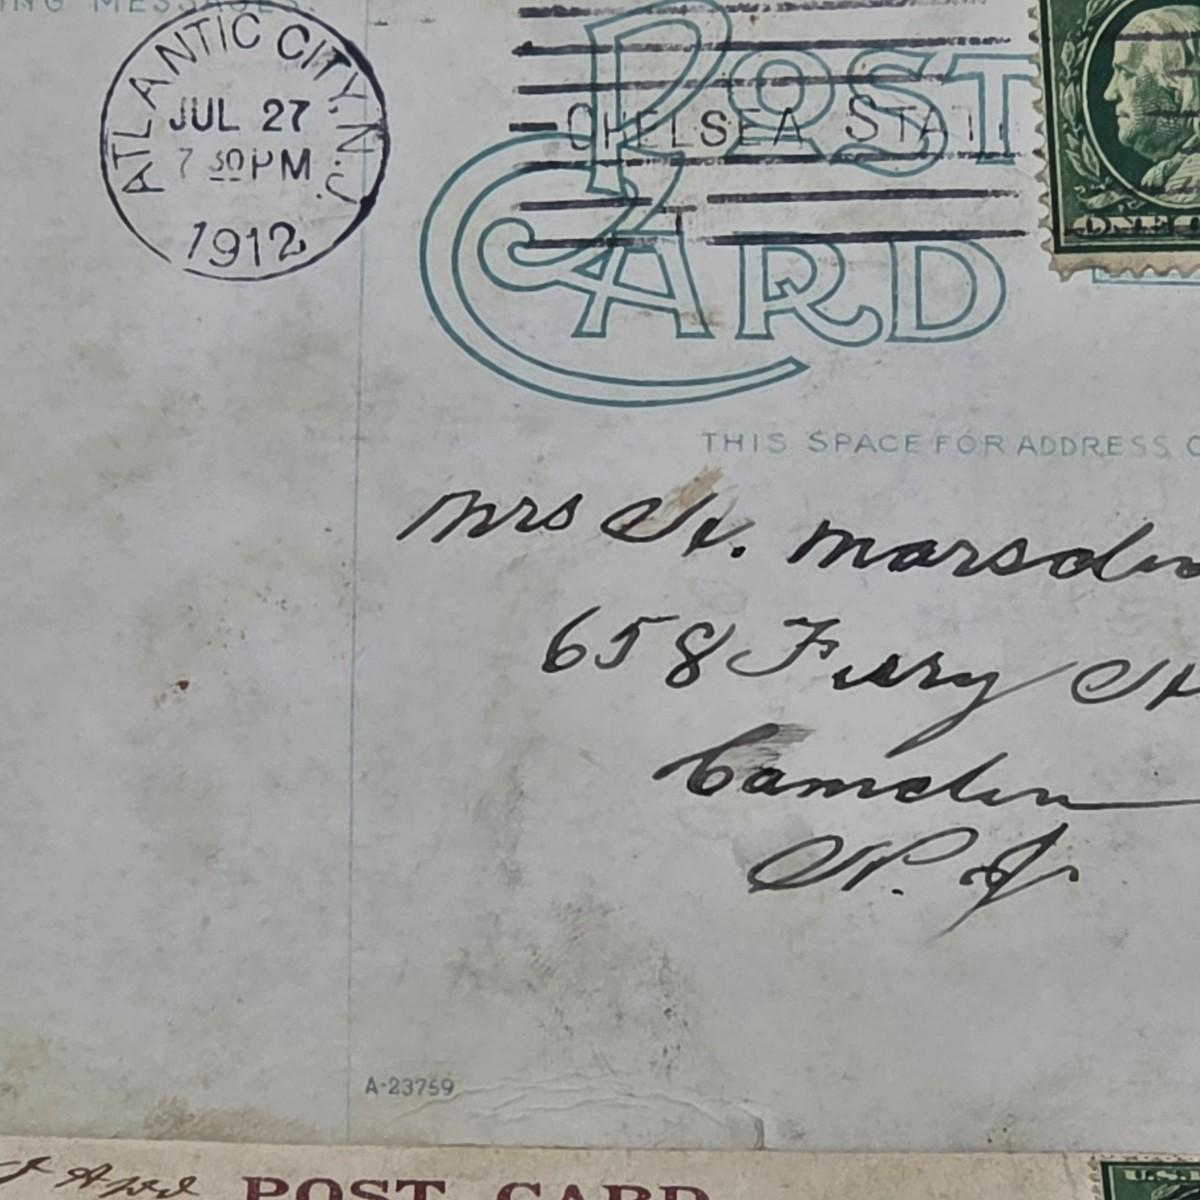 NG MESSAGES.
ATLANTIC CITY, N.J.
JUL 27
7 30 PM
1912
CHELSEA STA
POST
CARD
ONE
THIS SPACE FOR ADDRESS
Mrs W. Marsden
658 Ferry St
Camden
N. J.
A-23759
POST CARD